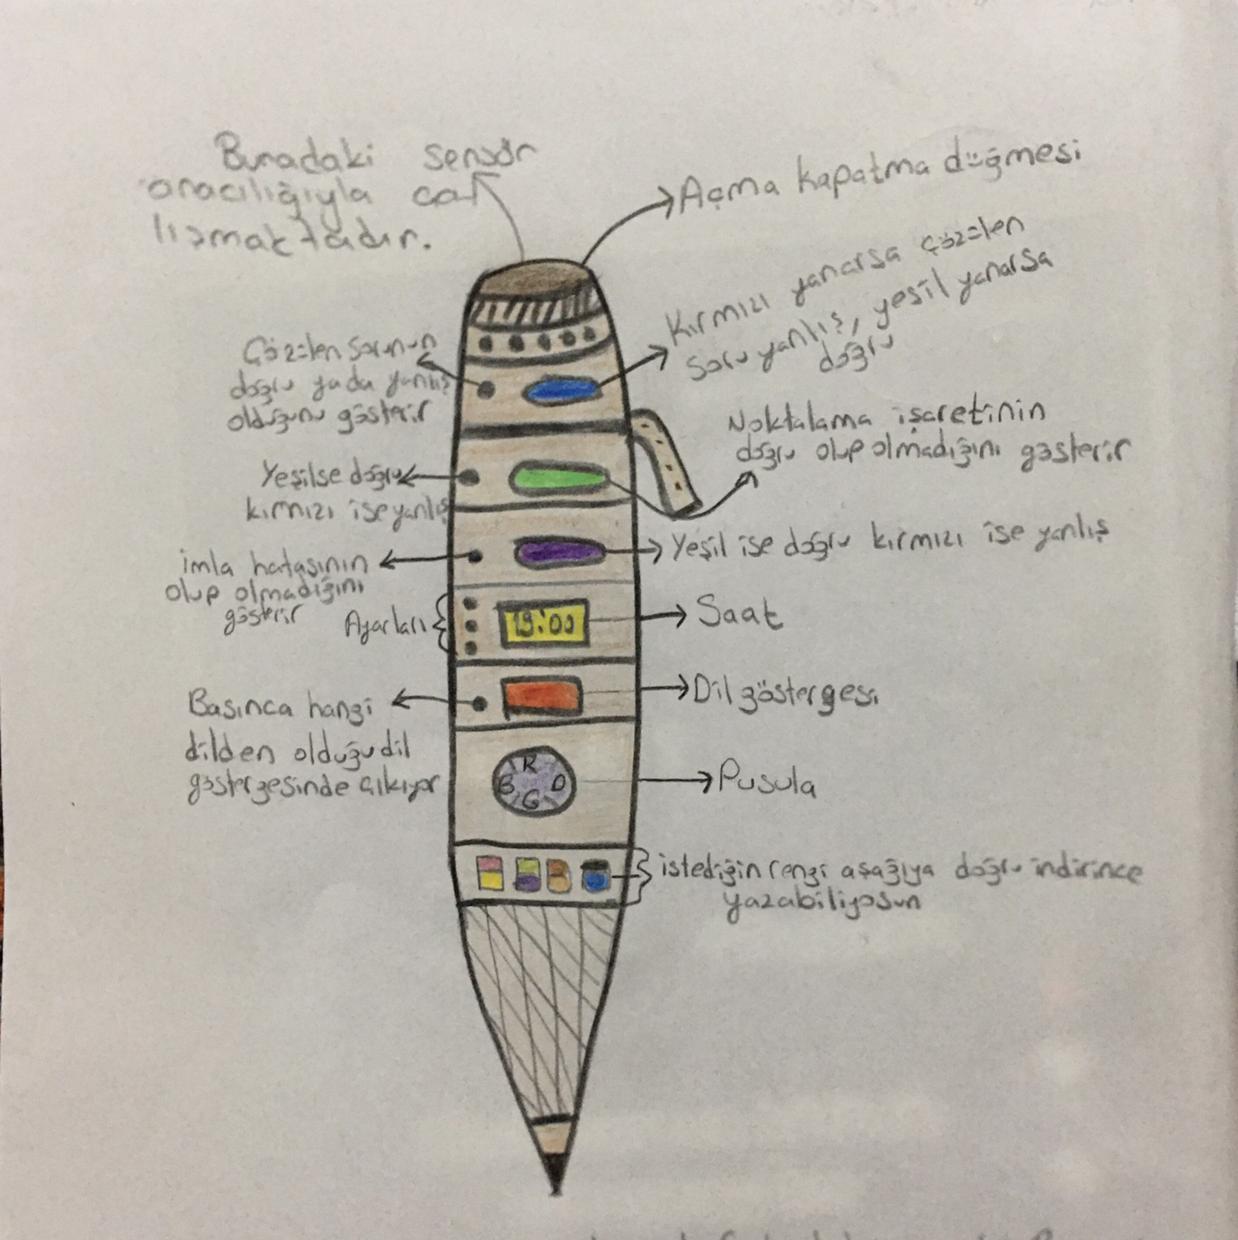 Buradaki sensör
aracılığıyla çal
lışmaktadır.
Açma kapatma düğmesi
Kırmızı yanarsa çözülen
soru yanlış, yeşil yanarsa
doğru
Çözülen sorunun
doğru yada yanlış
olduğunu gösterir
Noktalama işaretinin
doğru olup olmadığını gösterir
Yeşilse doğru
kırmızı ise yanlış
Yeşil ise doğru kırmızı ise yanlış
imla hatasının
olup olmadığını
gösterir
Ayarları
19:00
Saat
Basınca hangi
dilden olduğu dil
göstergesinde çıkıyor
Dil göstergesi
R
B D
G
Pusula
istediğin rengi aşağıya doğru indirince
yazabiliyosun